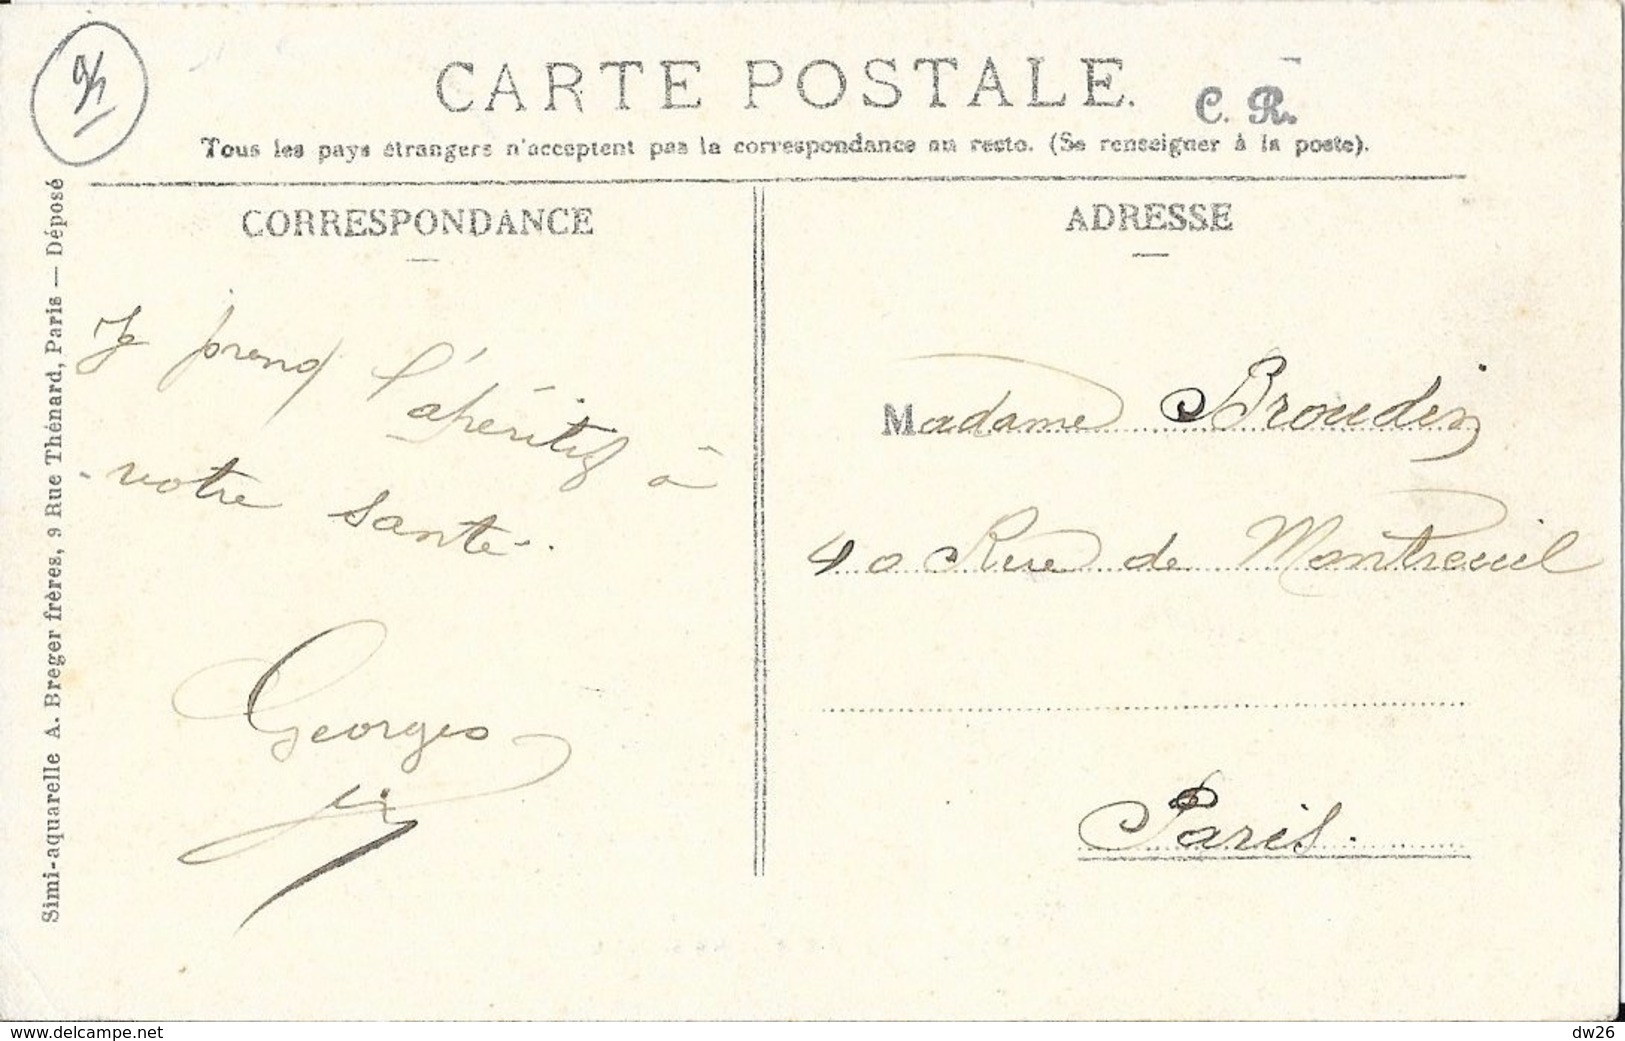 CARTE POSTALE.
C. R.
Tous les pays étrangers n'acceptent pas la correspondance au recto. (Se renseigner à la poste).
CORRESPONDANCE
Je prend l'apéritif à
votre santé.
Georges
ADRESSE
Madame Broudin
40 Rue de Montreuil
Paris.
Simi-aquarelle A. Breger frères, 9 Rue Thénard, Paris — Déposé
www.delcampe.net
dw26